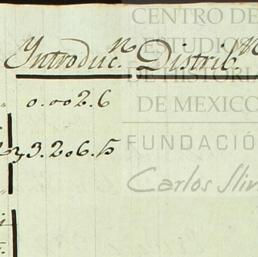 CENTRO DE
ESTUDIOS
DE HISTORIA
DE MEXICO
FUNDACIÓ
Carlos Sli
Introduc.n Distrib.n
0.002.6
3.206.